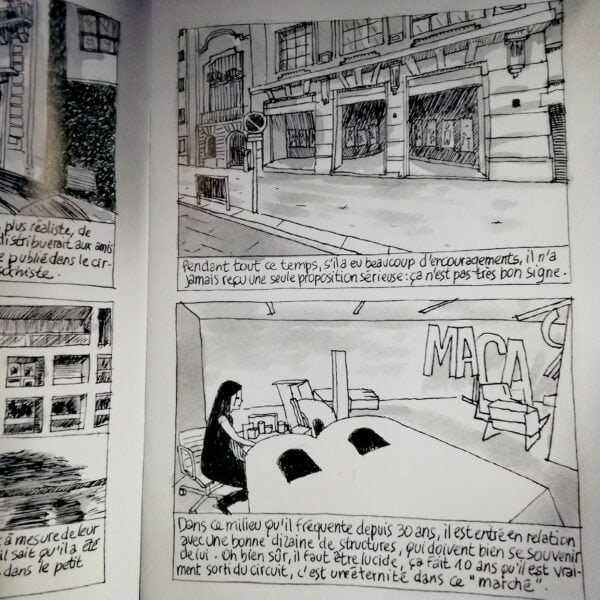 plus réaliste, de
distribuerait aux amis
e publié dans le cir-
ochiste.
Pendant tout ce temps, s'il a eu beaucoup d'encouragements, il n'a
jamais reçu une seule proposition sérieuse : ça n'est pas très bon signe.
à mesure de leur
il sait qu'il a été
dans le petit
MACA
Dans ce milieu qu'il fréquente depuis 30 ans, il est entré en relation
avec une bonne dizaine de structures, qui doivent bien se souvenir
de lui. Oh bien sûr, il faut être lucide, ça fait 10 ans qu'il est vrai-
ment sorti du circuit, c'est une éternité dans ce "marché".